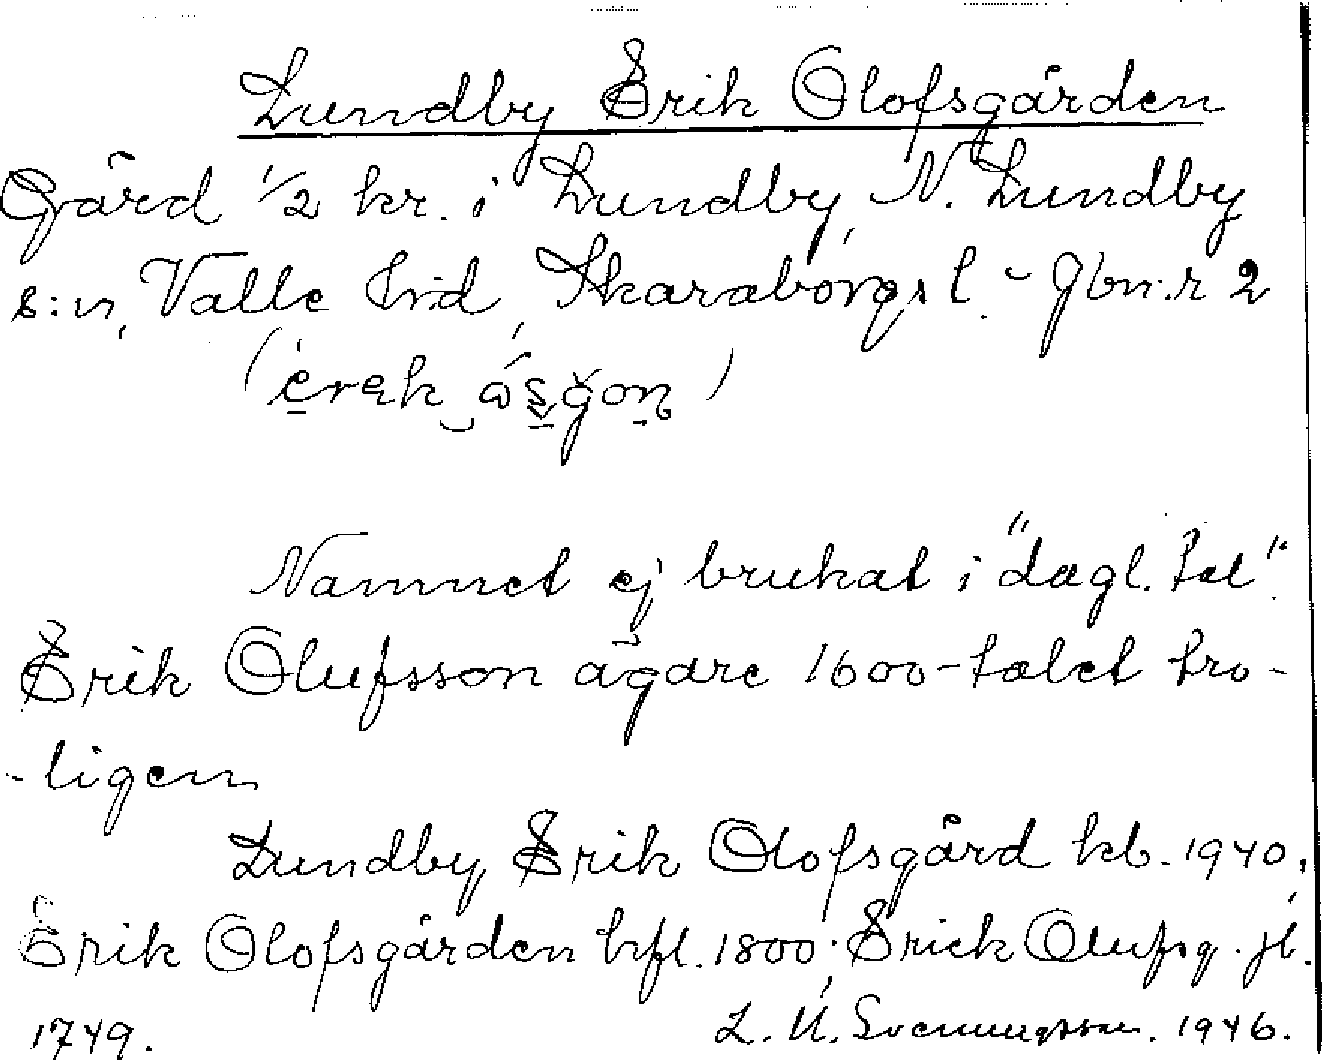 Lundby Erik Olofsgården
Gård 1/2 kr. i Lundby, N. Lundby
s:n, Valle hd, Skaraborgs l. - Gbn:r 2
Namnet ej brukat i "dagl. tal".
Erik Olufsson ägare 1600-talet tro-
-ligen
Lundby, Erik Olofsgård kb. 1940,
Erik Olofsgården hfl. 1800; Erick Olufsg. jb.
1749.